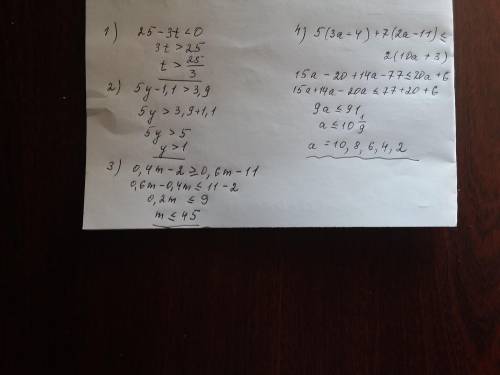 1) 25 - 3t < 0
3t > 25
t > 25/3
2) 5y - 1,1 > 3,9
5y > 3,9 + 1,1
5y > 5
y > 1
3) 0,4m - 2 ≥ 0,6m - 11
0,6m - 0,4m ≤ 11 - 2
0,2m ≤ 9
m ≤ 45
4) 5(3a - 4) + 7(2a - 11) ≤
2(10a + 3)
15a - 20 + 14a - 77 ≤ 20a + 6
15a + 14a - 20a ≤ 77 + 20 + 6
9a ≤ 91
a ≤ 10 1/9
a = 10, 8, 6, 4, 2